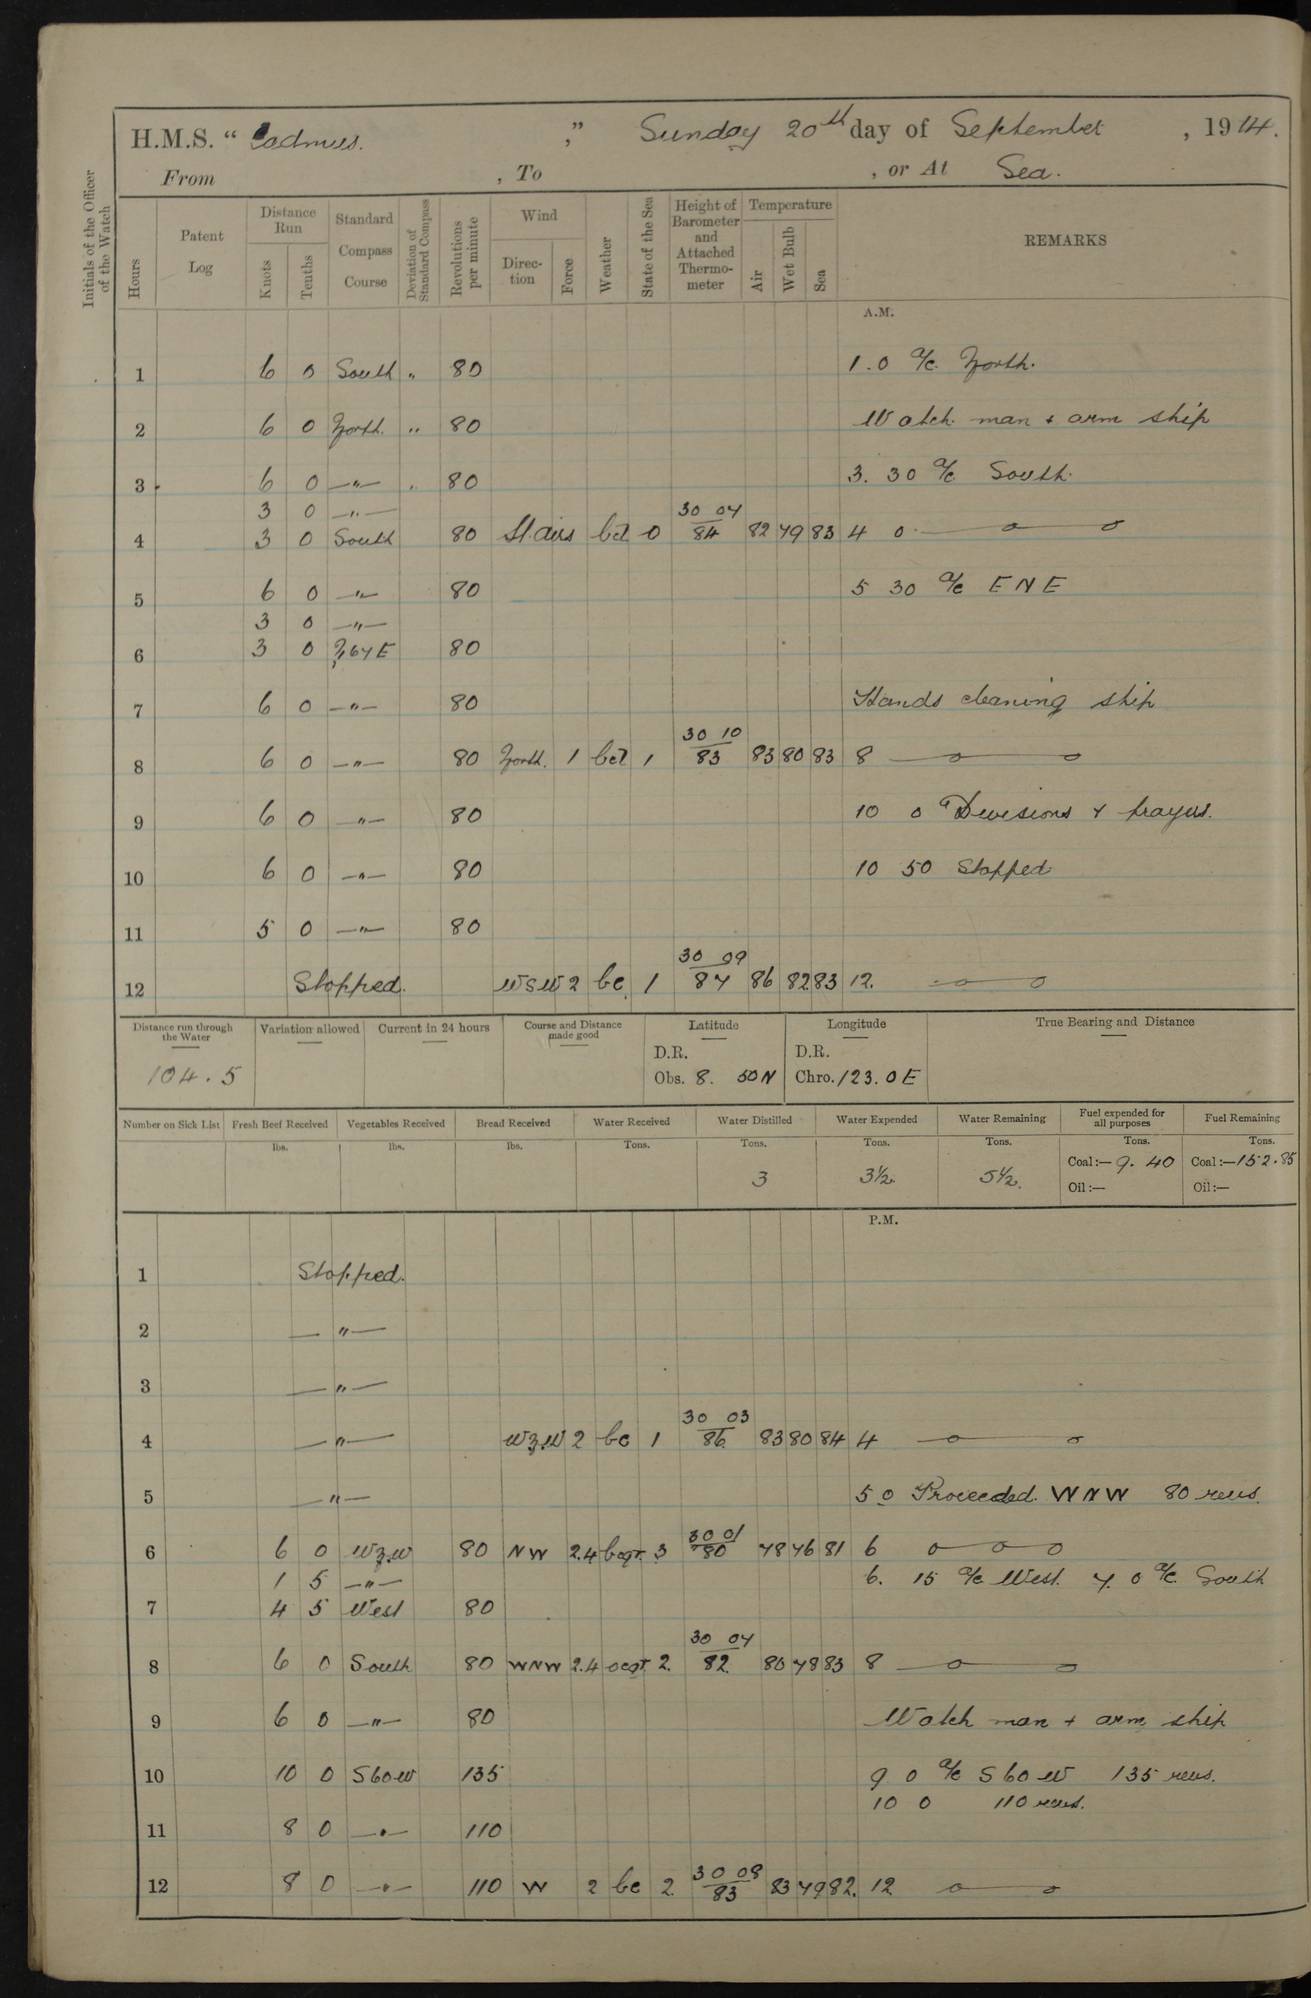 H.M.S. “ Cadmus. ” Sunday 20th day of September , 1914.
From , To , or At Sea.
Initials of the Officer of the Watch
Hours Patent Log Distance Run Knots Tenths Standard Compass Course Deviation of Standard Compass Revolutions per minute Wind Direction Force Weather State of the Sea Height of Barometer and Attached Thermometer Temperature Air Wet Bulb Sea REMARKS
A.M.
1 6 0 South " 80 1.0 a/c North.
2 6 0 North. " 80 Watch man + arm ship
3 6 0 —"— 80 3.30 a/c South.
3 0 —"— 30 04
4 3 0 South 80 Lt airs bcl 0 84 82 79 83 4 0
5 6 0 —"— 80 5 30 a/c ENE
3 0 —"—
6 3 0 80
7 6 0 —"— 80 Hands cleaning ship
30 10
8 6 0 —"— 80 North. 1 bcl 1 83 83 80 83 8
9 6 0 —"— 80 10 0 Divisions & prayers.
10 6 0 —"— 80 10 50 Stopped
11 5 0 —"— 80
30 09
12 Stopped. WSW 2 bc 1 87 86 82 83 12.
Distance run through the Water Variation allowed Current in 24 hours Course and Distance made good Latitude Longitude True Bearing and Distance
D.R. D.R.
104.5 Obs. 8. 50N Chro. 123.0E
Number on Sick List Fresh Beef Received Vegetables Received Bread Received Water Received Water Distilled Water Expended Water Remaining Fuel expended for all purposes Fuel Remaining
lbs. lbs. lbs. Tons. Tons. Tons. Tons. Tons. Tons.
3 3½ 5½. Coal:— 9. 40 Coal:—152.85
Oil:— Oil:—
P.M.
1 Stopped.
2 —"—
3 —"—
30 03
4 —"— 2 bc 1 86 83 80 84 4
5 —"— 5 0 Proceeded. WNW 80 revs.
30 01
6 6 0 80 NW 2.4 bcqr 3 80 78 76 81 6
1 5 —"— 6. 15 a/c West. 7. 0 a/c South
7 4 5 West 80
30 04
8 6 0 South 80 WNW 2.4 ocqr 2. 82. 80 78 83 8
9 6 0 —"— 80 Watch man + arm ship
10 10 0 S60W 135 9 0 a/c S60W 135 revs.
10 0 110 revs.
11 8 0 —"— 110
30 08
12 8 0 —"— 110 W 2 bc 2 83 83 79 82. 12